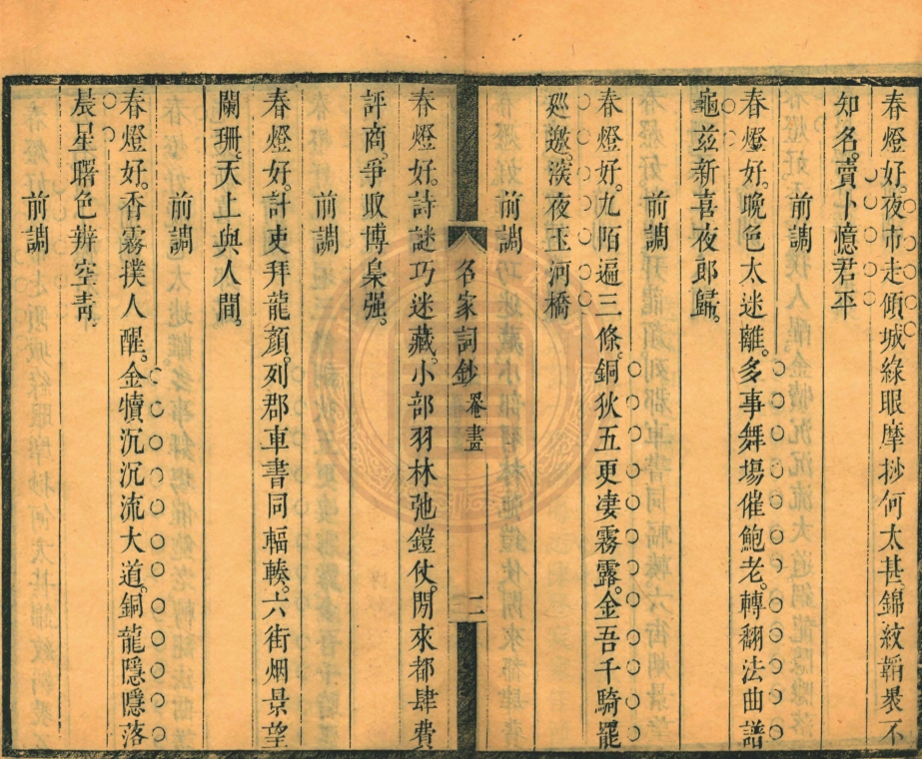 春燈好。夜市走傾城。綠眼摩挱何太甚。錦紋韜褁不
知名。賣卜憶君平
前調
春燈好。晚色太迷離。多事舞塲催鮑老。轉翻法曲譜
龜茲。新喜夜郎歸。
前調
春燈好。九陌遍三條。銅狄五更凄霧露。金吾千騎罷
廵邀。淡夜玉河橋
前調
名家詞鈔
二
春燈好。詩謎巧迷藏。小部羽林弛鎧仗。閒來都肆費
評商。爭取博梟强。
前調
春燈好。計吏拜龍顏。列郡車書同輻輳。六街烟景望
闌珊。天上與人間。
前調
春燈好。香霧撲人醒。金犢沉沉流大道。銅龍隱隱落
晨星。曙色辨空靑。
前調